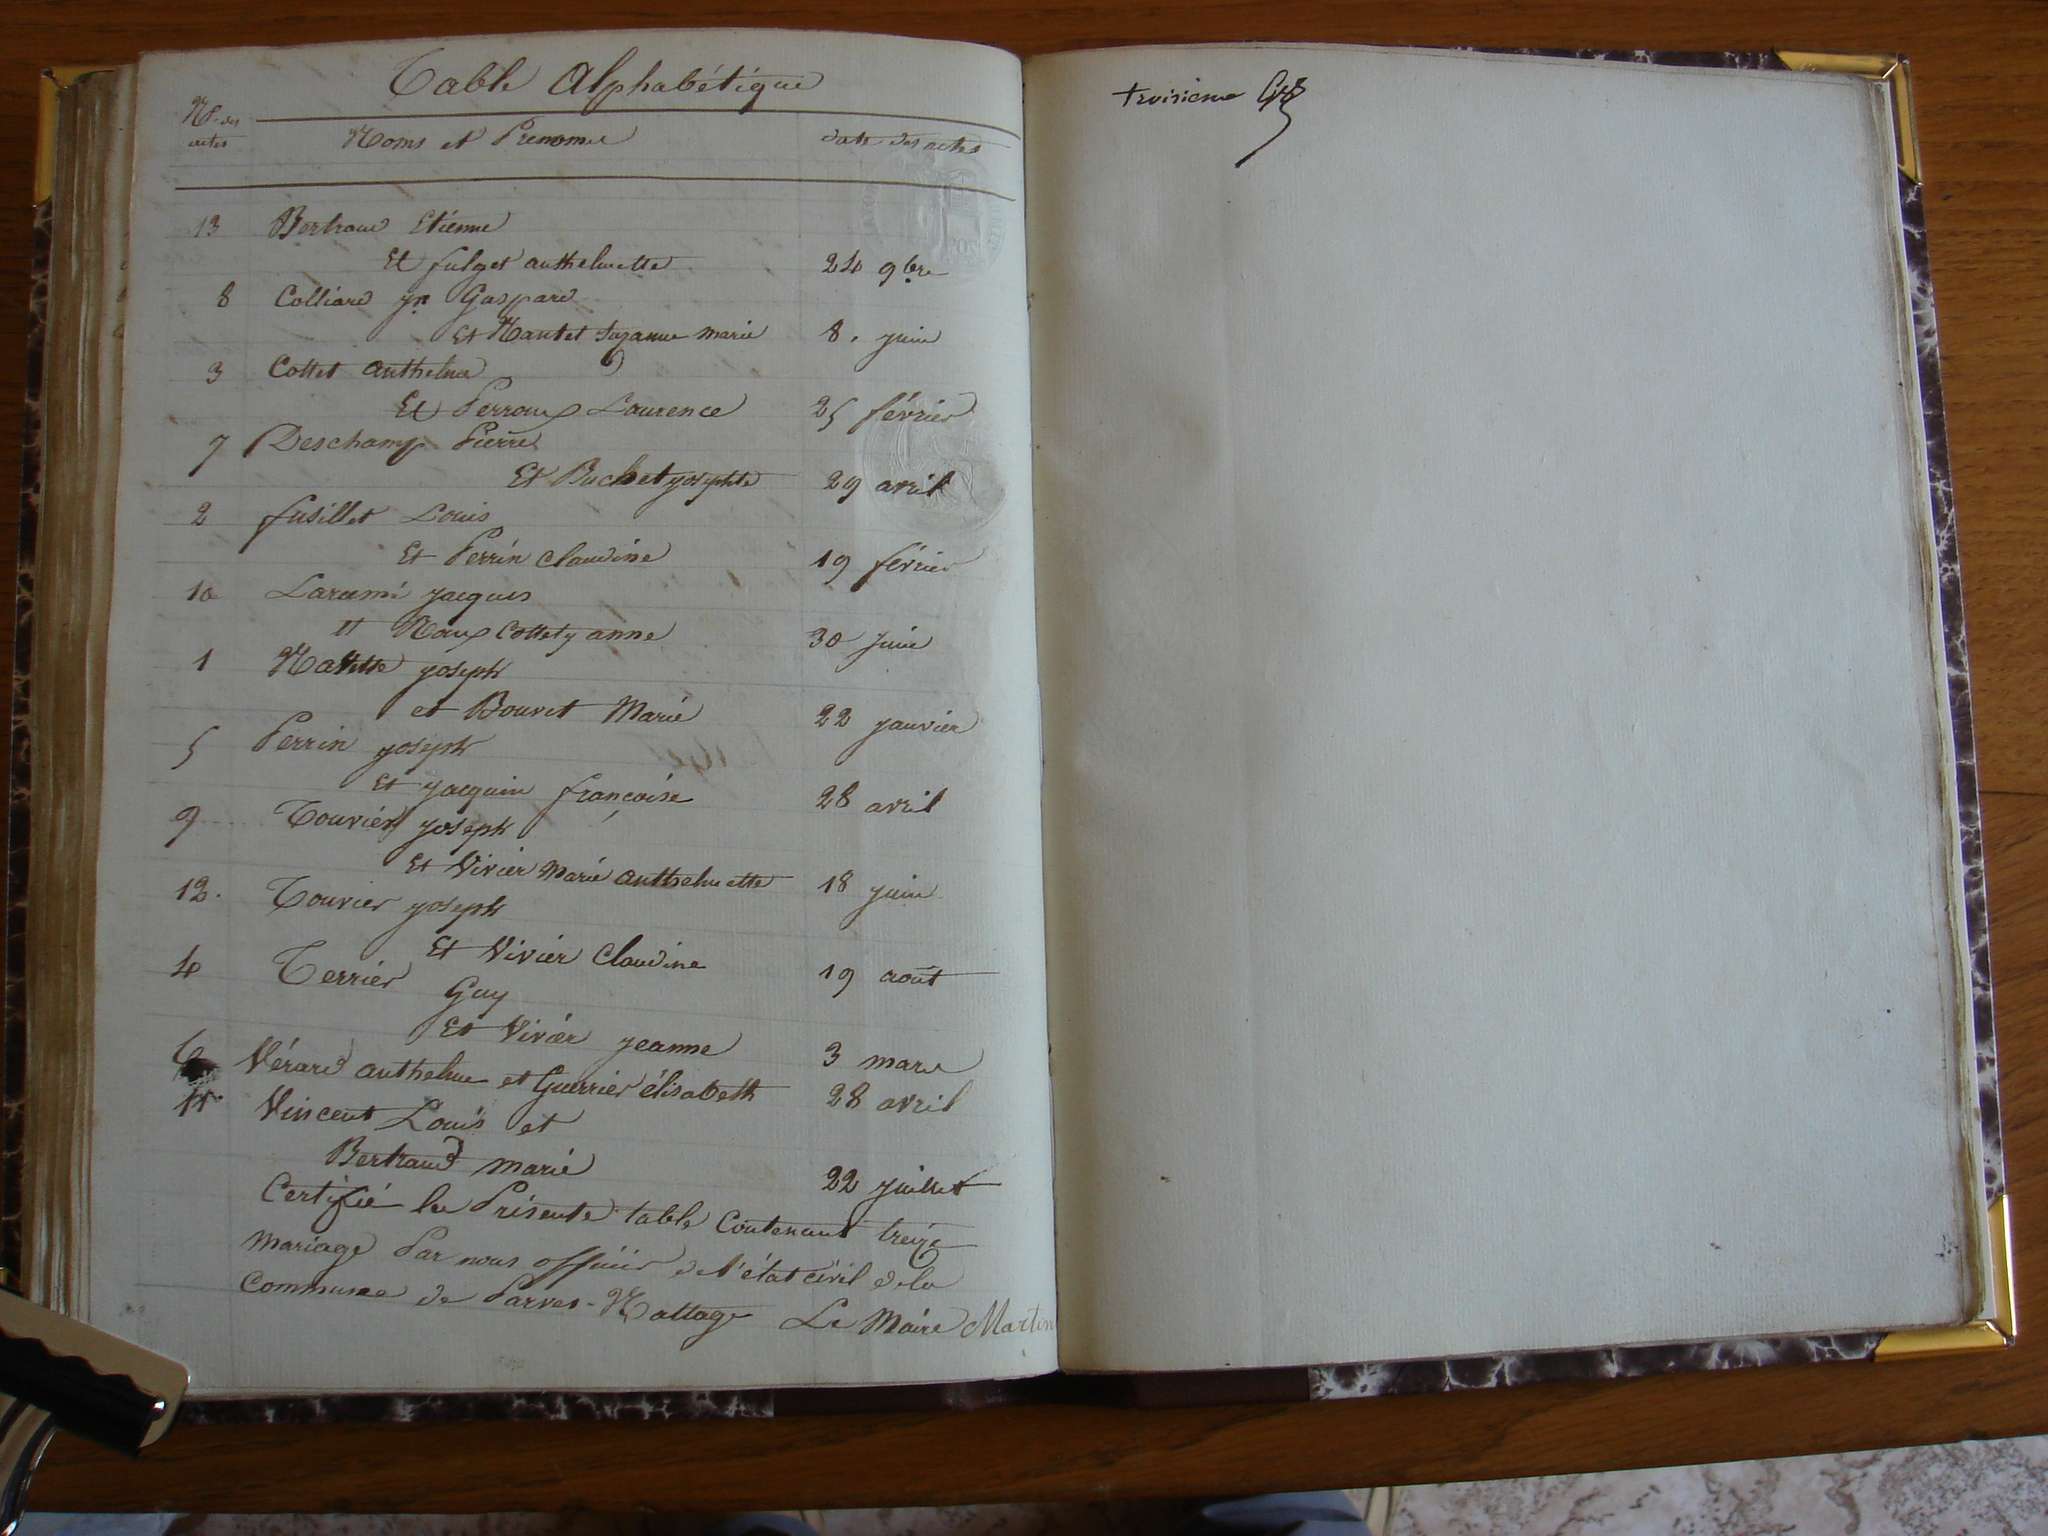 Table Alphabétique
N.os des actes
Noms et Prenoms
date des actes
13 Bertrand Etienne
Et fulget anthelmette 24 9bre
8 Colliard jn Gaspard
Et Nantet Suzanne marie 8. juin
3 Cottet anthelme
Et Perroux Laurence 25 février
7 Deschamp Pierre
Et Buchet josephte 29 avril
2 fusillet Louis
Et Perrin claudine 19 février
10 Jacques
et Roux Cottety anne 30 juin
1 joseph
et Bouvet Marie 22 janvier
5 Perrin joseph
Et jacquin françoise 28 avril
9 Touvier joseph
Et Vivier Marie anthelmette 18 juin
12. Touvier joseph
Et Vivier Claudine 19 août
4 Terrier Guy
Et Vivier jeanne 3 mars
6 Vérard anthelme et Guerrier élisabeth 28 avril
11. Vincent Louis et
Bertrand marie 22 juillet
Certifié la Présente table Contenant treize
mariage Par nous officier de l'état civil de la
Commune de Parves-Nattage Le Maire Martin
troisieme